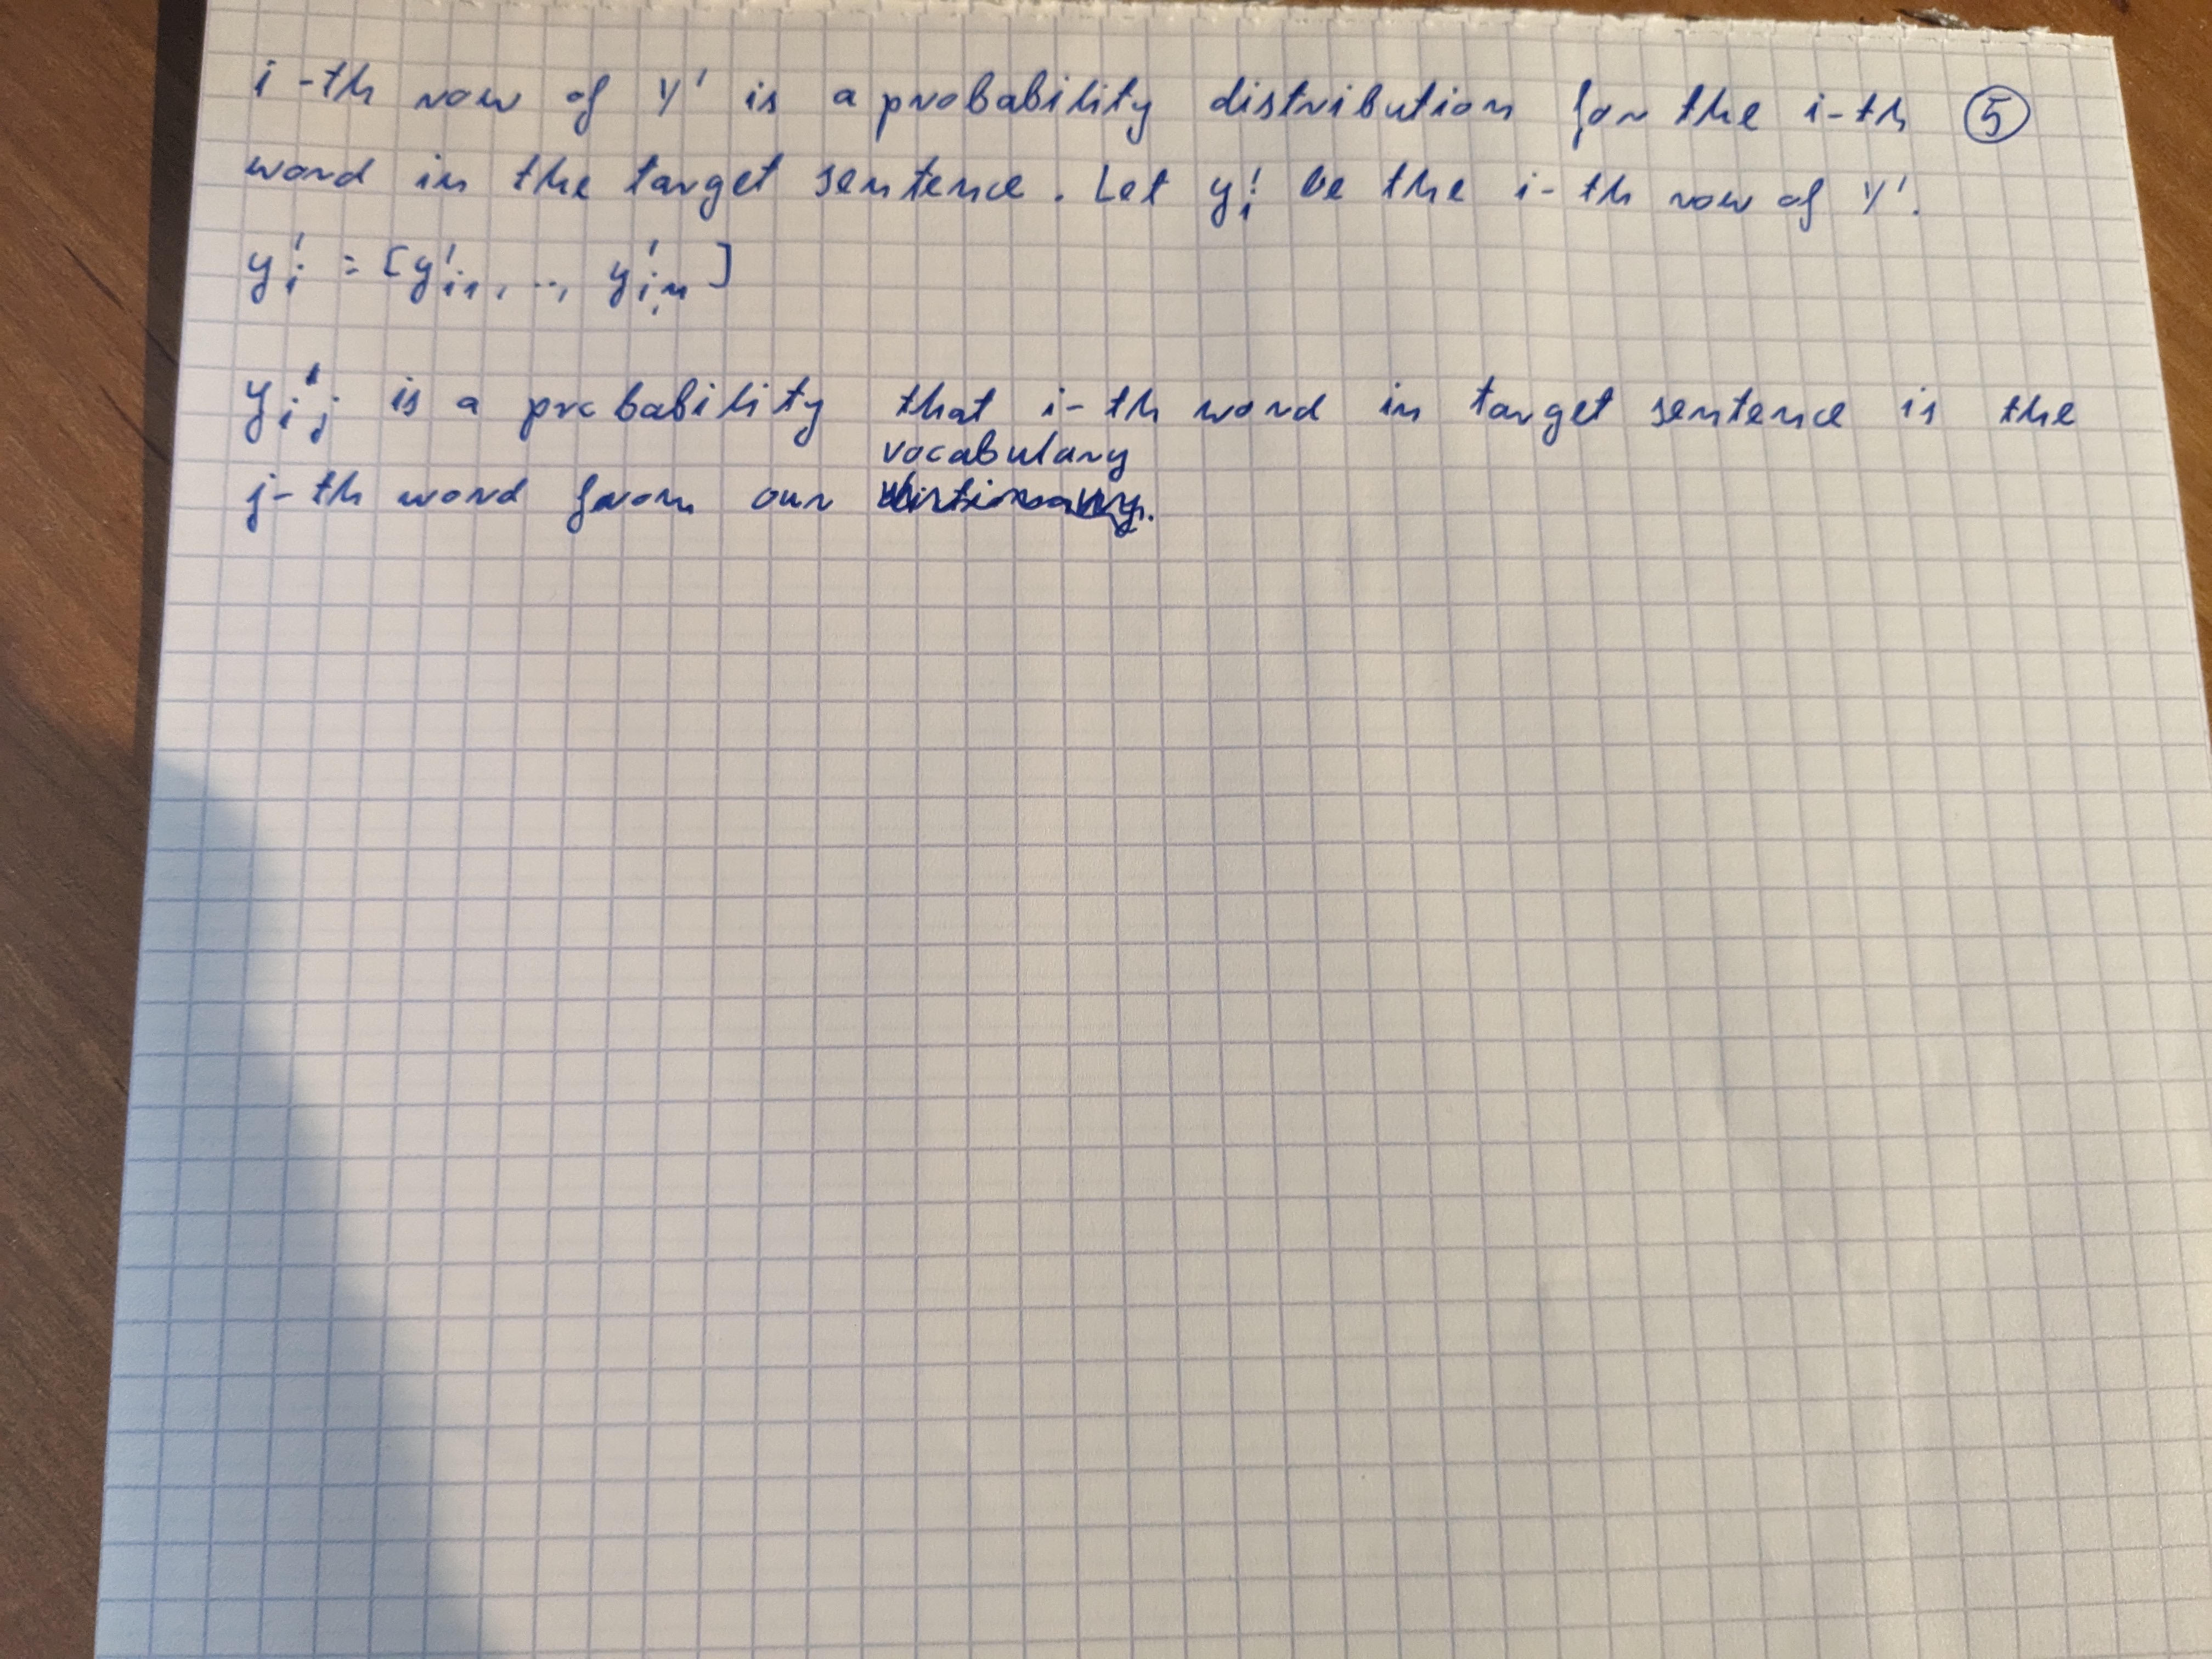 i-th row of Y' is a probability distribution for the i-th ⑤
word in the target sentence. Let y'i be the i-th row of Y'.
y'i = [y'i1, .., y'in]
y'ij is a probability that i-th word in target sentence is the
vocabulary
j-th word from our dictionary.